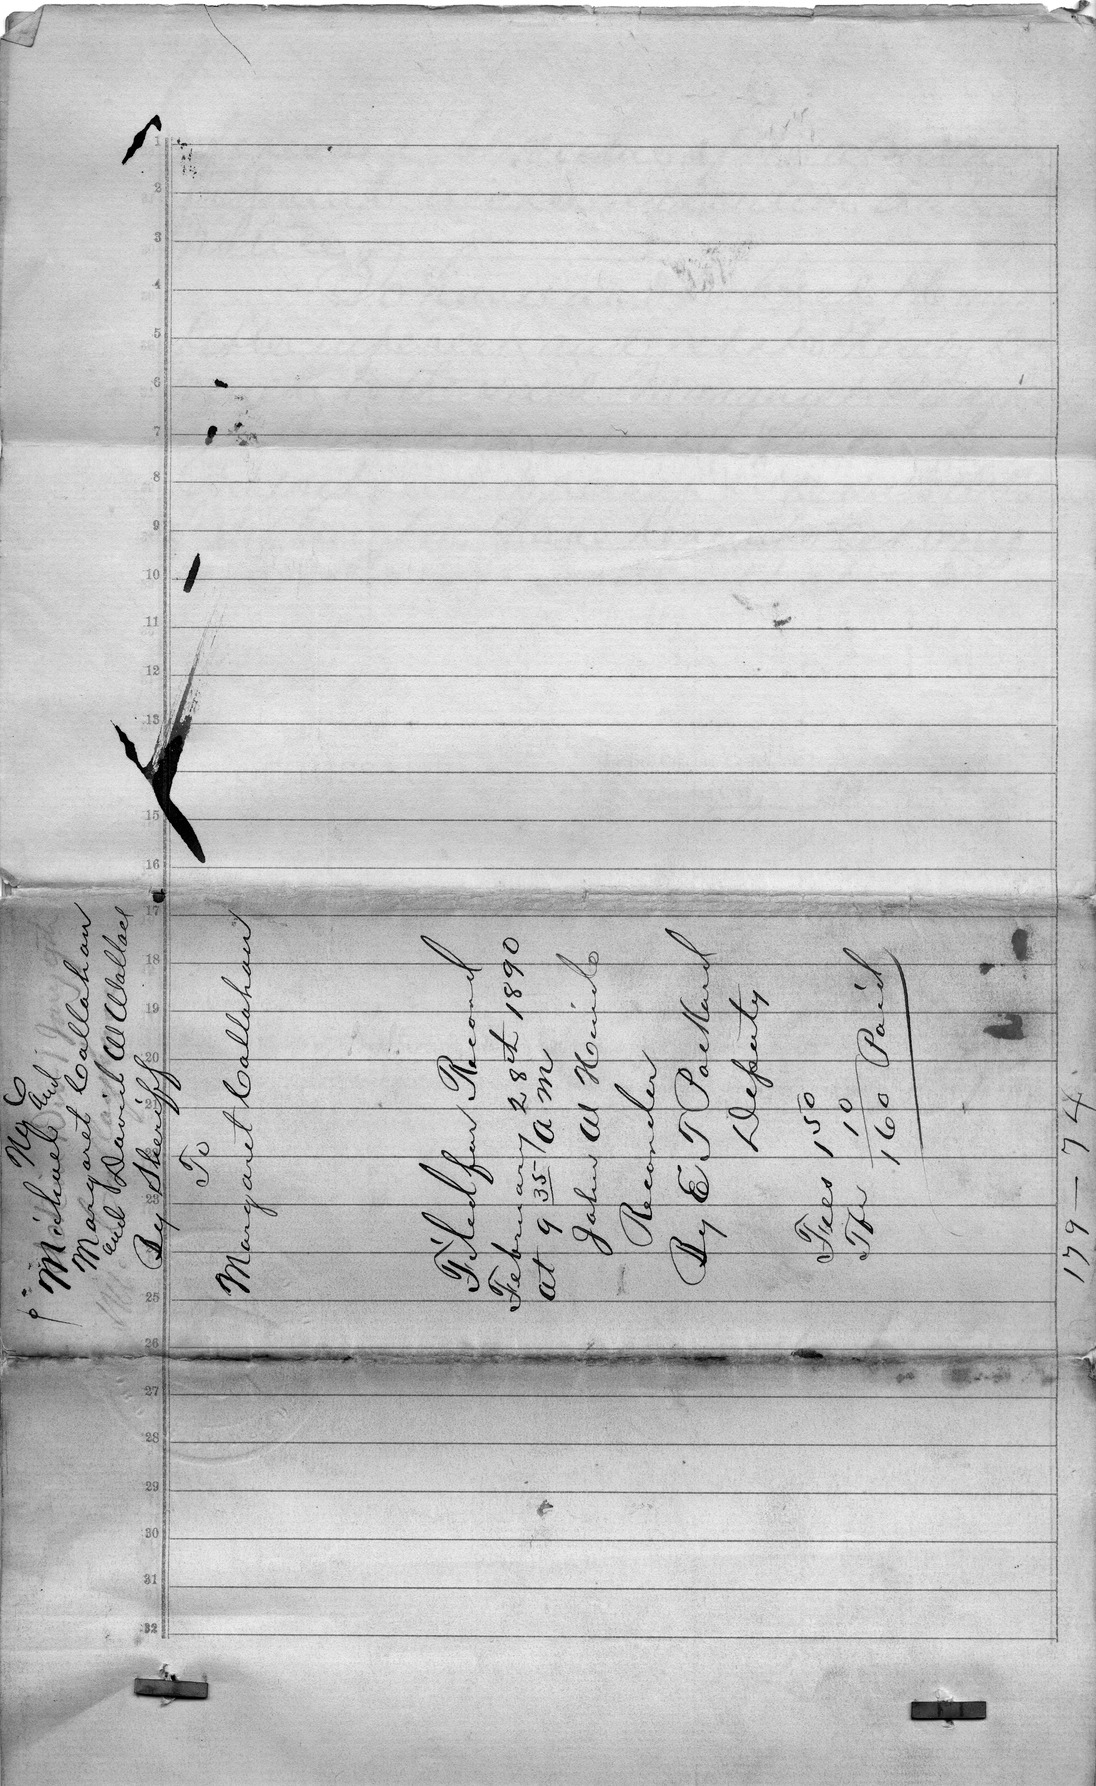 1
2
3
4
5
6
7
8
9
10
11
12
13
15
16
17
18
19
20
21
23
25
26
27
28
29
30
31
32
Michael and
Margaret Callahan
and David W Wallace
By Sheriff
To
Margaret Callahan
Filed for Record
February 28th 1890
at 9 35 A M
John W
Recorder
By E T Packard
Deputy
Fees 1 50
10
1 60 Paid
179-74